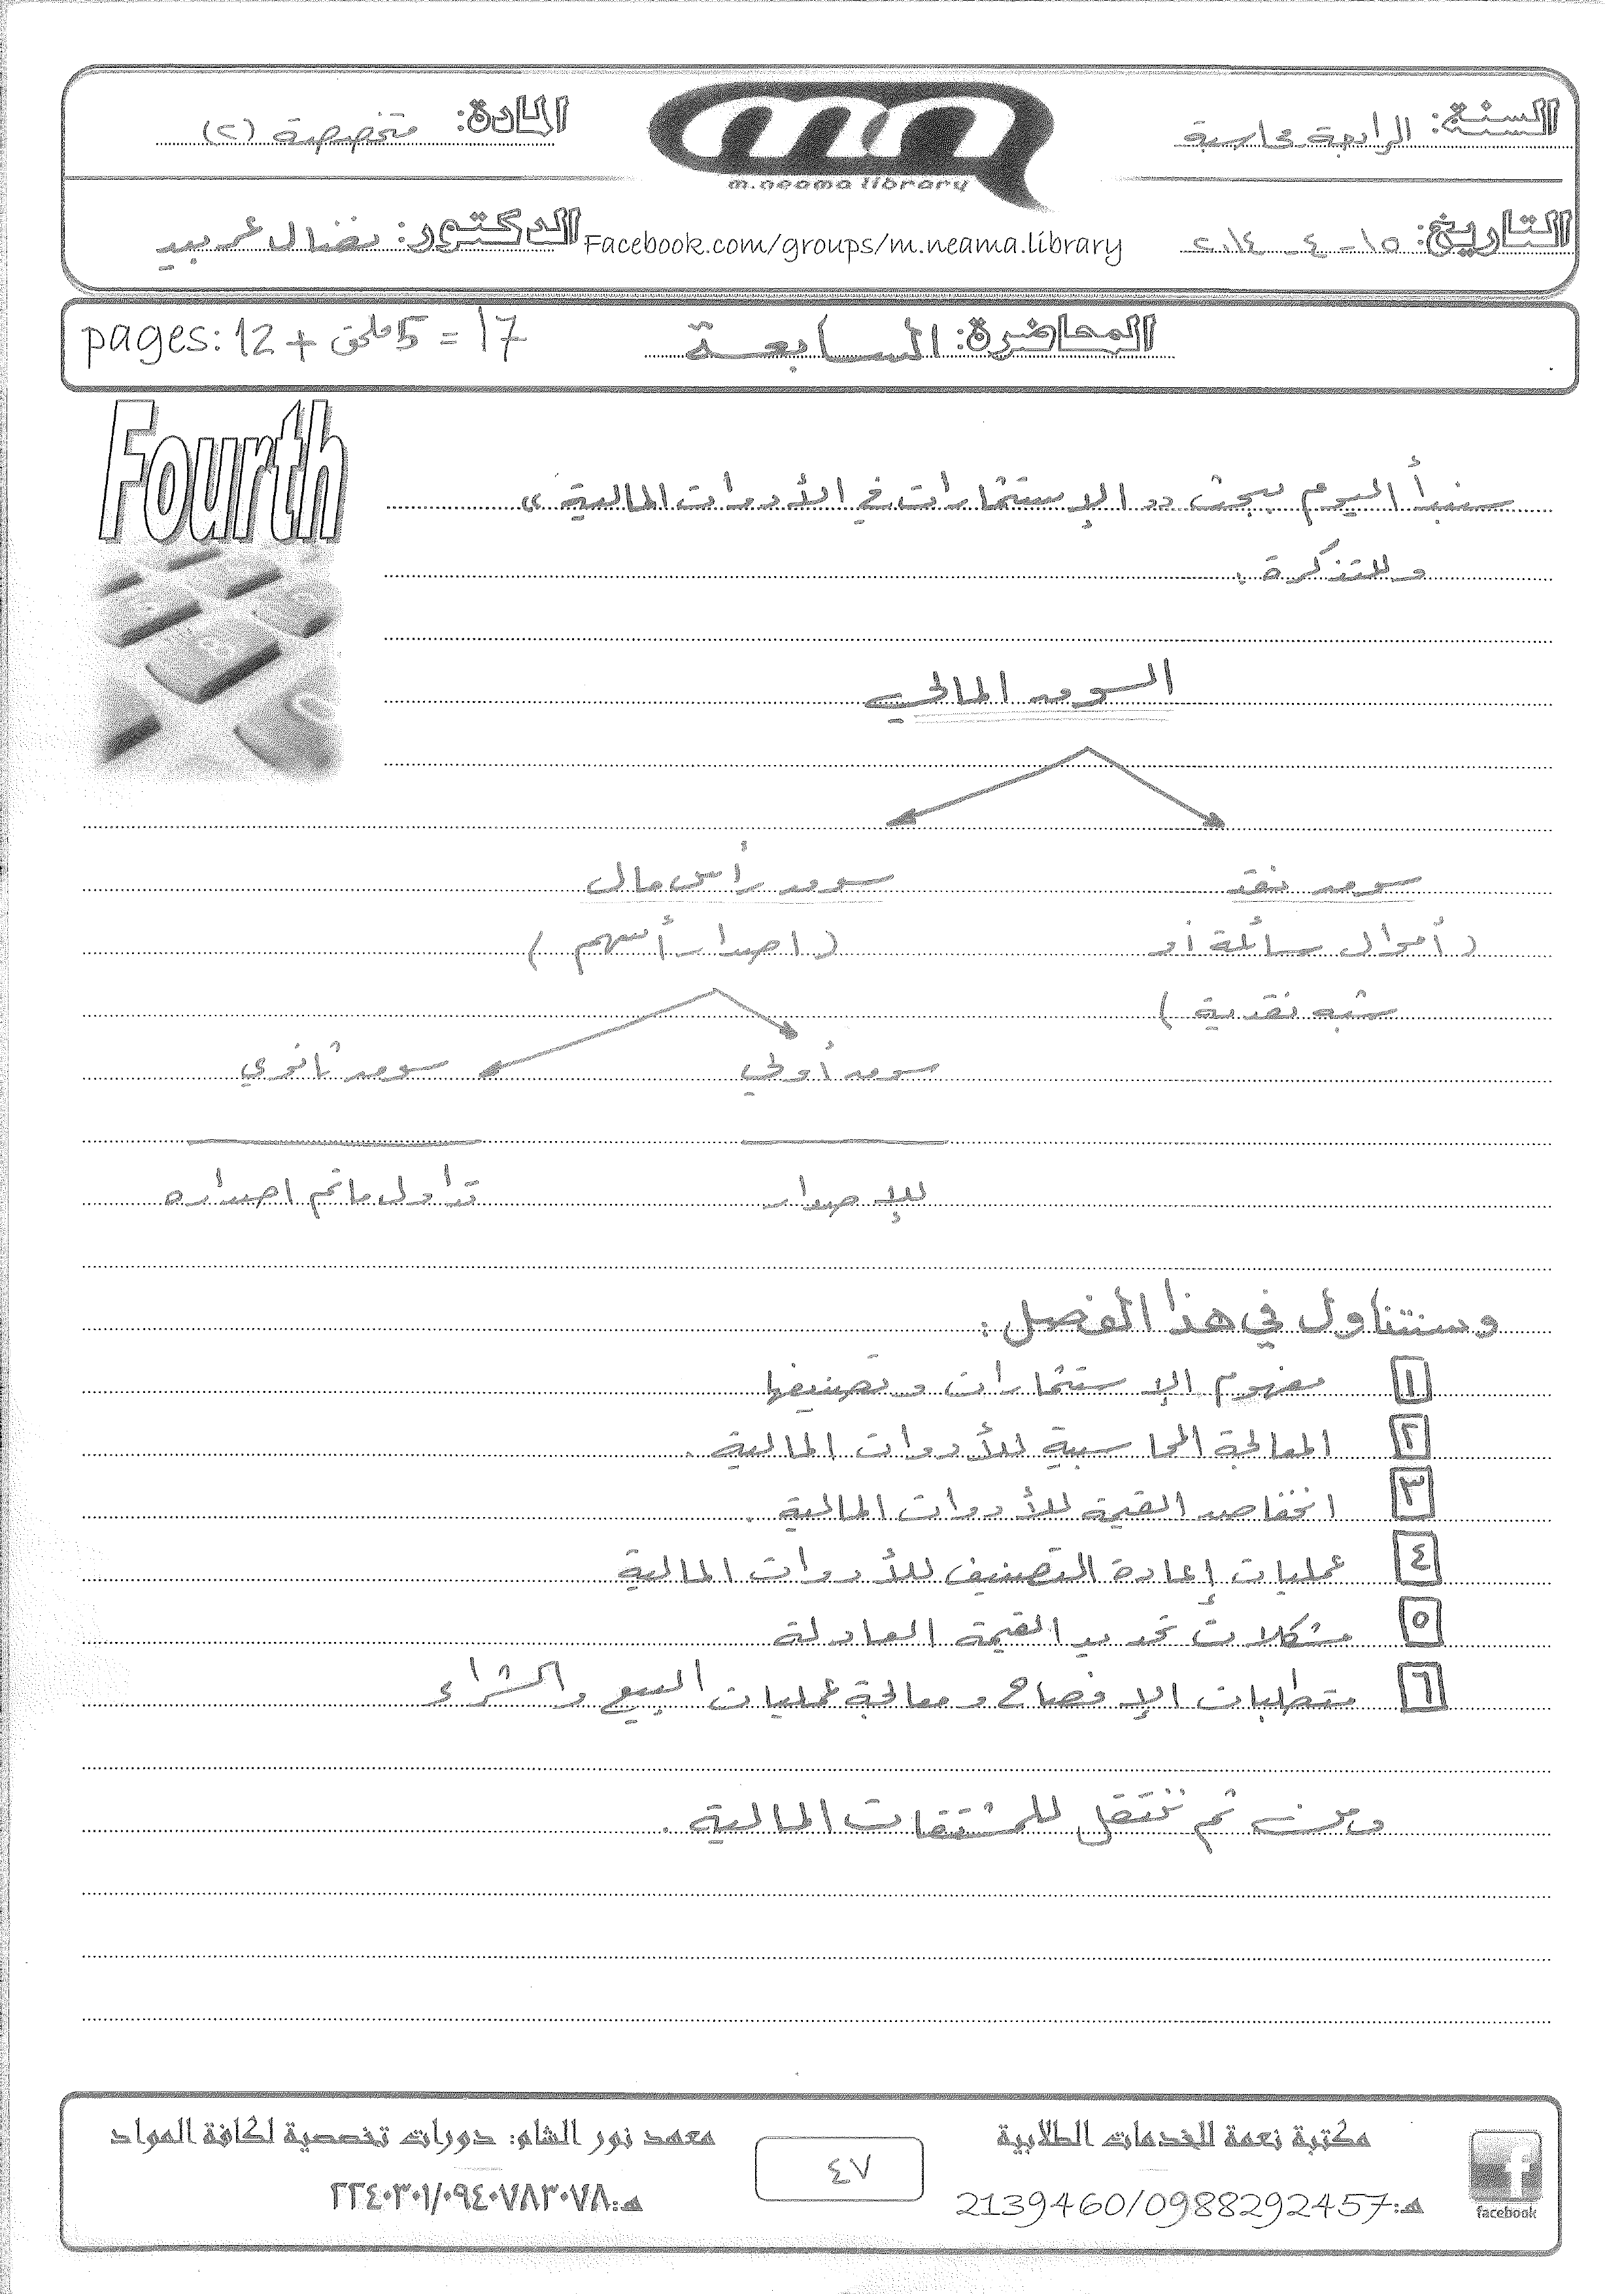 السنة: الرابعة محاسبة
المادة: متخصصة (٢)
m.neama library
التاريخ: ١٥ - ٤ - ٢٠١٤
Facebook.com/groups/m.neama.library
الدكتور: نضال عربيد
المحاضرة: السابعة
pages: 12 + 5 ملحق = 17
Fourth
سنبدأ اليوم ببحث " الإستثمارات في الأدوات المالية "
وللتذكرة :
السوق المالي
سوق نقد
سوق رأس مال
( أموال سائلة أو
( اصدار أسهم )
شبه نقدية )
سوق أولي
سوق ثانوي
للإصدار
تداول ماتم اصداره
وسنتناول في هذا الفصل :
١ مفهوم الإستثمارات وتصنيفها
٢ المعالجة المحاسبية للأدوات المالية .
٣ انخفاض القيمة للأدوات المالية .
٤ عمليات إعادة التصنيف للأدوات المالية
٥ مشكلات تحديد القيمة العادلة
٦ متطلبات الإفصاح ومعالجة عمليات البيع والشراء
ومن ثم ننتقل للمشتقات المالية .
مكتبة نعمة للخدمات الطلابية
هـ: 2139460/0988292457
facebook
٤٧
معهد نور الشام: دورات تخصصية لكافة المواد
هـ: ٢٢٤٠٣٠١/٠٩٤٠٧٨٣٠٧٨